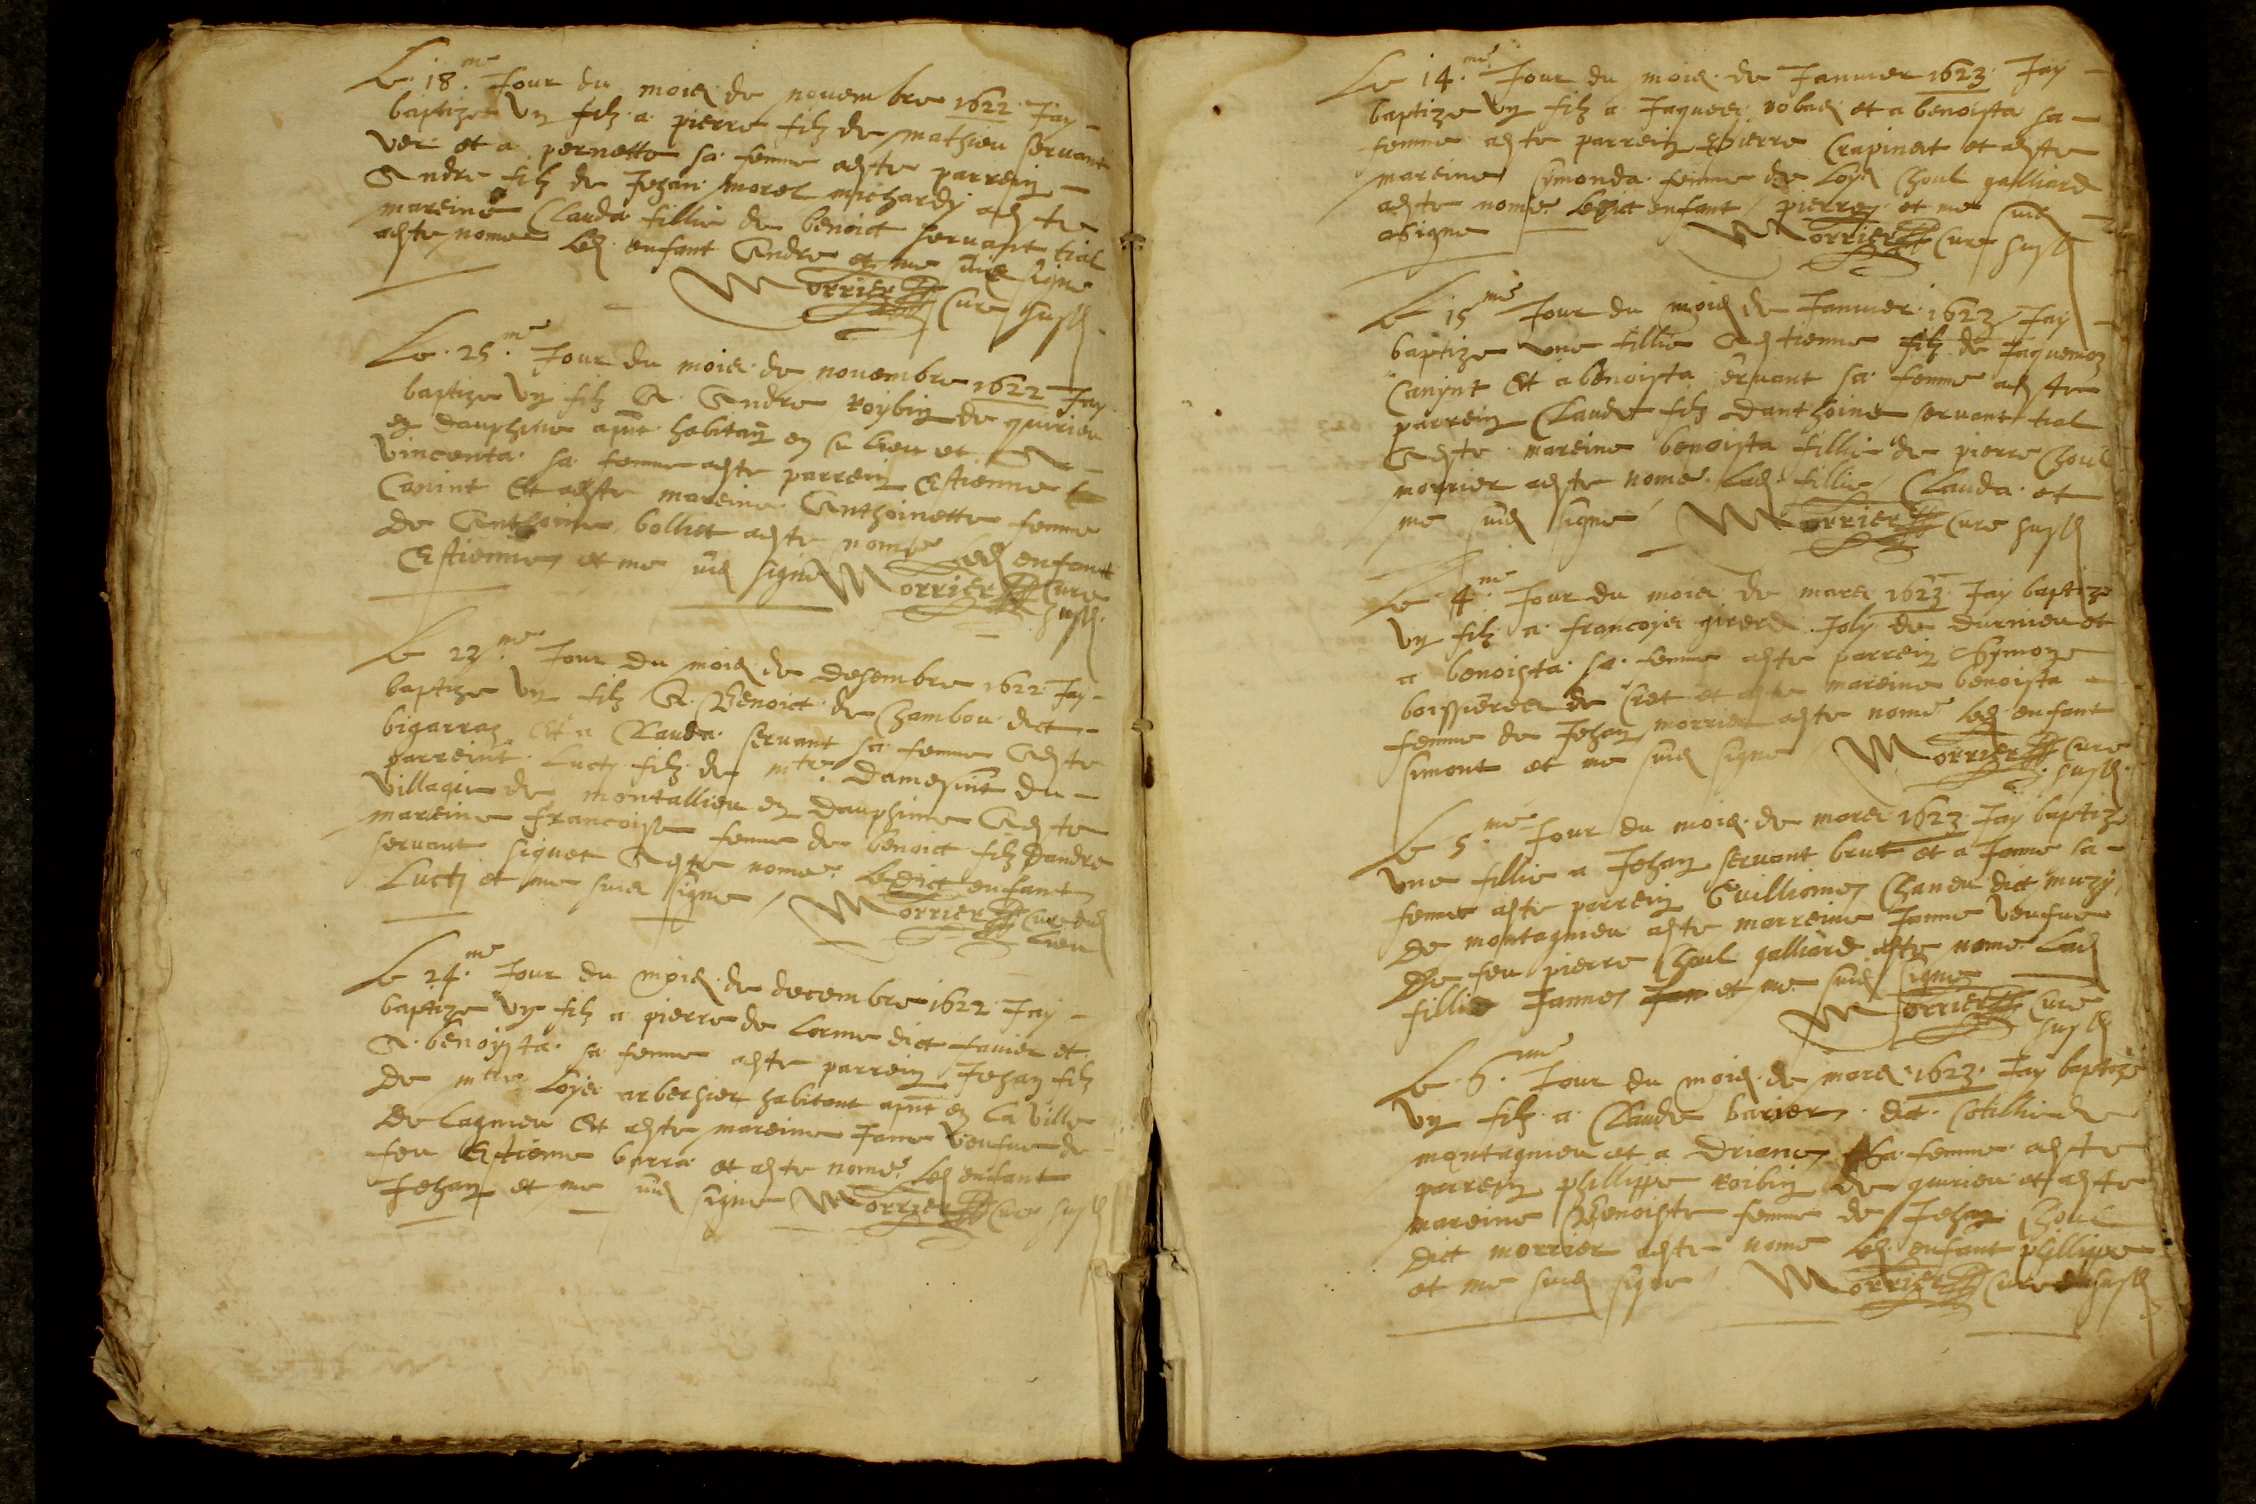 Le 18.me Jour du mois de novembre 1622 Jay
baptize Vn filz a pierre filz de mathieu servant
et a pernette sa femme aeste parrein
Andre filz de Jehan morel michardz aeste
mareine Clauda fillie de benoict servant tial
aeste nome led enfant Andre et me suis signe
Morrier Cure susd
Le 25.me Jour du mois de novembre 1622 Jay
baptize Vn filz A Andre roybin de quirieu
en dauphine apnt habitant en ce lieu et A
Vincenta sa femme aeste parrein Estienne
Canint Et aeste mareine Anthoinette femme
de Anthoine bolliet aeste nome led enfant
Estienne et me suis signe Morrier Cure
susd
Le 22.me Jour du mois de desembre 1622 Jay
baptize Vn filz A Benoict de Chambou dict
bigarraz Et a Clauda servant sa femme Aeste
parreint Lucq filz de mtre Damesint du
Village de montallieu en Dauphine Aeste
mareine francoise femme de benoict filz dandre
servant siquet Aeste nome Ledict enfant
Lucq et me suis signe Morrier Cure dud
Lieu
Le 24.me Jour du mois de decembre 1622 Jay
baptize Vn filz a pierre de Lorme dict favier et
A benoysta sa femme aeste parrein Jehan filz
de mtre Loys arbershier habitant apnt en La Ville
de Lagnieu Et aeste mareine Jane Veufue de
feu Estienne borra et aeste nome Led enfant
Jehan et me suis signe Morrier Cure susd
Le 14.me Jour du mois de Januier 1623 Jay
baptize Vn filz a Jaques robas et a benoista sa
femme aeste parrein pierre Crapinet et aeste
mareine Symonda femme de Loys Choul galliard
aeste nome Ledict enfant pierre et me suis
Signe Morrier Cure susd
Le 15.me Jour du mois de Januier 1623 Jay
baptize vne fillie A estienne filz de Jaquemoz
Canynt Et a benoista servant sa femme aeste
parrein Claude filz danthoine servant tial
Aeste mareine benoista fillie de pierre Choul
morrier aeste nome Lad fillie Clauda et
me suis signe Morrier Cure susd
Le 4.me Jour du mois de mars 1623 Jay baptize
Vn filz a francoys girerd Joly de durnieu et
a benoista sa femme aeste parrein Symoze
boissieres de Cret et aeste mareine benoista
femme de Jehan morrier aeste nome led enfant
simont et me suis signe Morrier Cure
susd
Le 5.me Jour du mois de mars 1623 Jay baptize
vne fillie a Jehan servant brut et a Janne sa
femme aeste parrein Guilliome Chaneu dict muzy
de montagnieu aeste marreine Janne Veufue
de feu pierre Choul galliard aeste nome Lad
fillie Janne et me suis signe
Morrier Cure
susd
Le 6.me Jour du mois de mars 1623 Jay baptize
Vn filz a Claude barier dict Cotillie de
montagnieu et a Driane sa femme aeste
parrein phillippe roibin de quirieu et aeste
mareine Benoiste femme de Jehan Choul
dict morrier aeste nome Led enfant phillippe
et me suis signe Morrier Cure susd